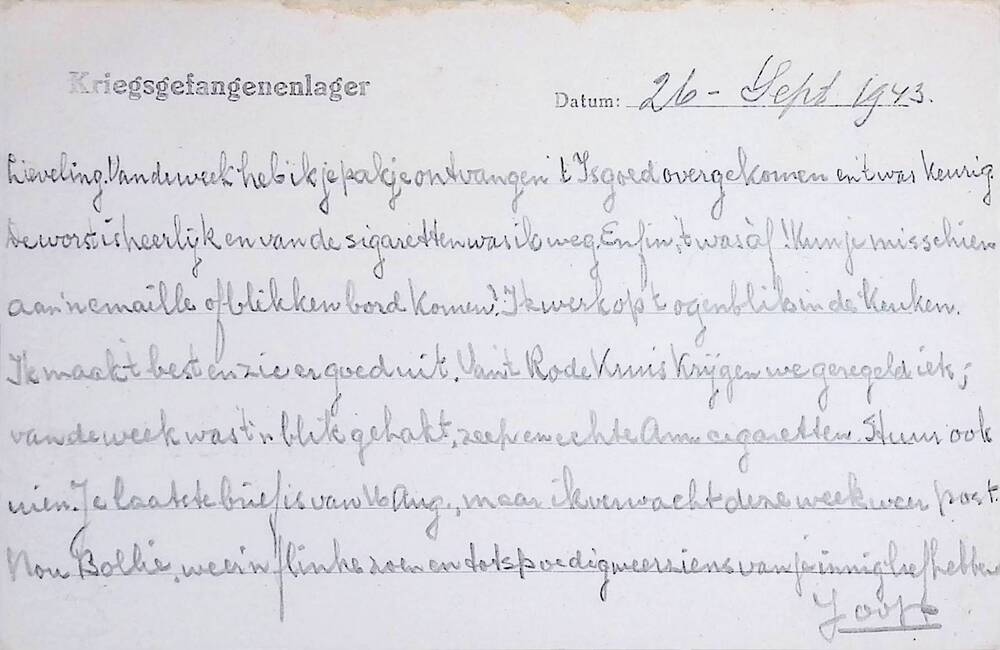 Kriegsgefangenenlager
Datum: 26 - Sept 1943.
Lieveling. Van de week heb ik je pakje ontvangen! 't Is goed overgekomen en 't was keurig.
De worst is heerlijk en van de sigaretten was ik weg. Enfin, 't was àf! Kun je misschien
aan 'n emaille of blikken bord komen? Ik werk op 't ogenblik in de keuken.
Ik maak 't best en zie er goed uit. Van 't Rode Kruis krijgen we geregeld iets;
van de week was 't 'n blik gehakt, zeep en echte Am. cigaretten. Stuur ook
Je laatste brief is van 16 Aug., maar ik verwacht deze week weer post.
Nou Bollie, weer 'n flinke zoen en tot spoedig weerziens van je innig liefhebbende
Joop